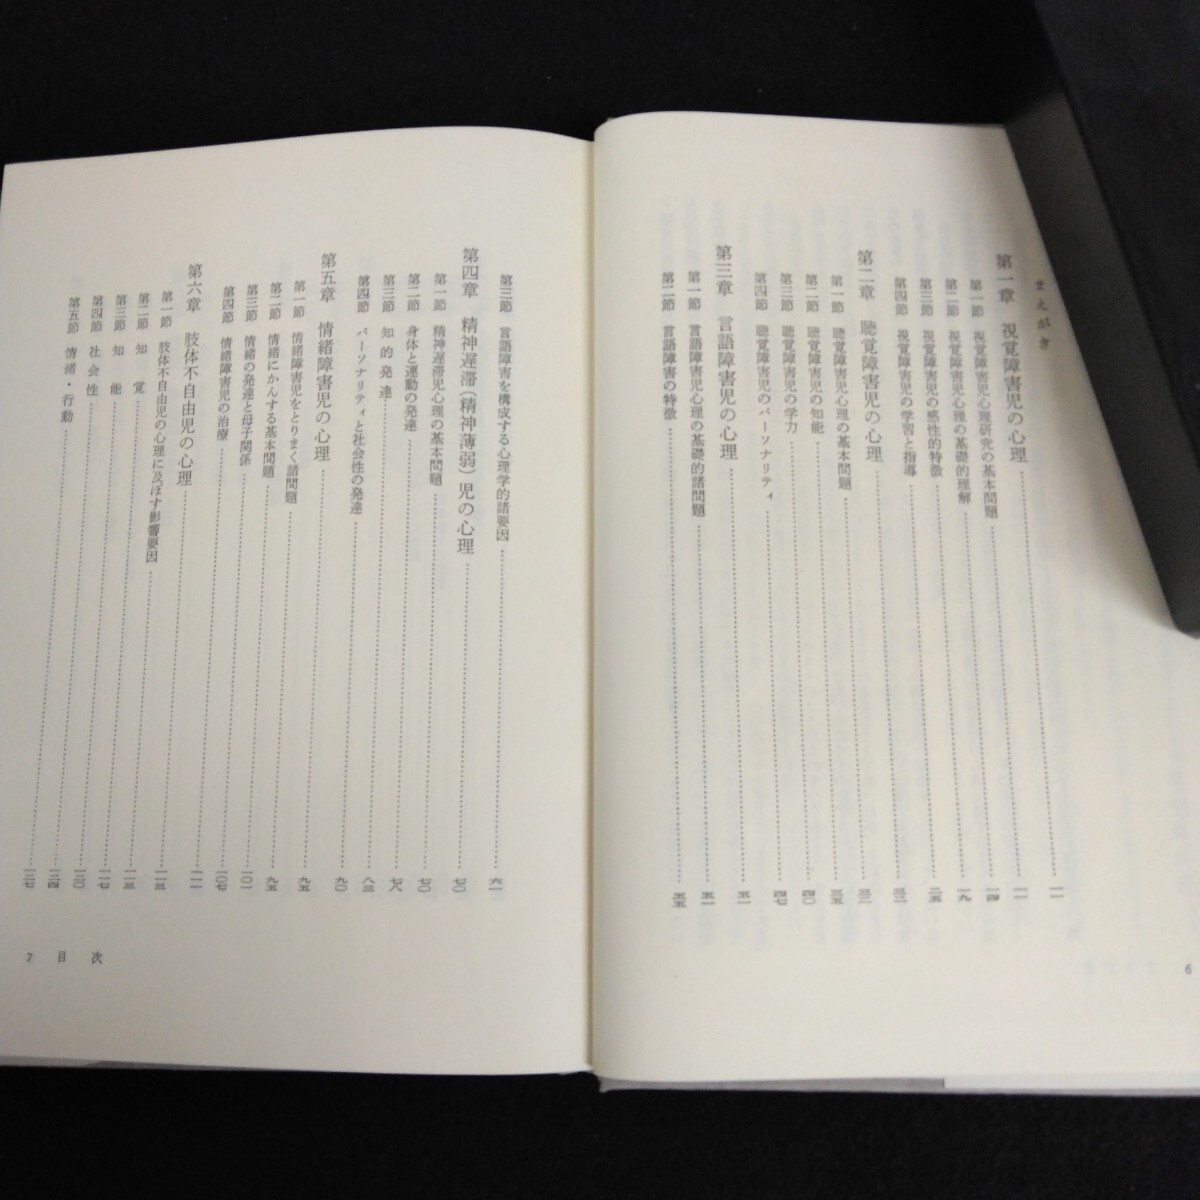 まえがき
第一章　視覚障害児の心理……一一
第一節　視覚障害児心理研究の基本問題……一一
第二節　視覚障害児心理の基礎的理解……一四
第三節　視覚障害児の感性的特徴……一九
第四節　視覚障害児の学習と指導……二五
第二章　聴覚障害児の心理
第一節　聴覚障害児心理の基本問題
第二節　聴覚障害児の知能……三五
第三節　聴覚障害児の学力……四〇
第四節　聴覚障害児のパーソナリティ……四七
第三章　言語障害児の心理……五一
第一節　言語障害児心理の基礎的諸問題……五一
第二節　言語障害の特徴……五五
6
第三節　言語障害を構成する心理学的諸要因……六一
第四章　精神遅滞（精神薄弱）児の心理……七〇
第一節　精神遅滞児心理の基本問題……七〇
第二節　身体と運動の発達……七八
第三節　知的発達……八三
第四節　パーソナリティと社会性の発達……九〇
第五章　情緒障害児の心理……九五
第一節　情緒障害児をとりまく諸問題……九五
第二節　情緒にかんする基本問題……一〇一
第三節　情緒の発達と母子関係……一〇七
第四節　情緒障害児の治療
第六章　肢体不自由児の心理
第一節　肢体不自由児の心理に及ぼす影響要因……一一三
第二節　知覚……一一三
第三節　知能……一一七
第四節　社会性
第五節　情緒・行動
7　目次